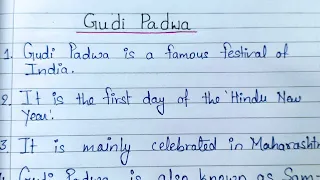 Gudi Padwa
1. Gudi Padwa is a famous festival of
India.
2. It is the first day of the 'Hindu New
Year.'
3 It is mainly celebrated in Maharasht
Gudi Padwa is also known as Sam-